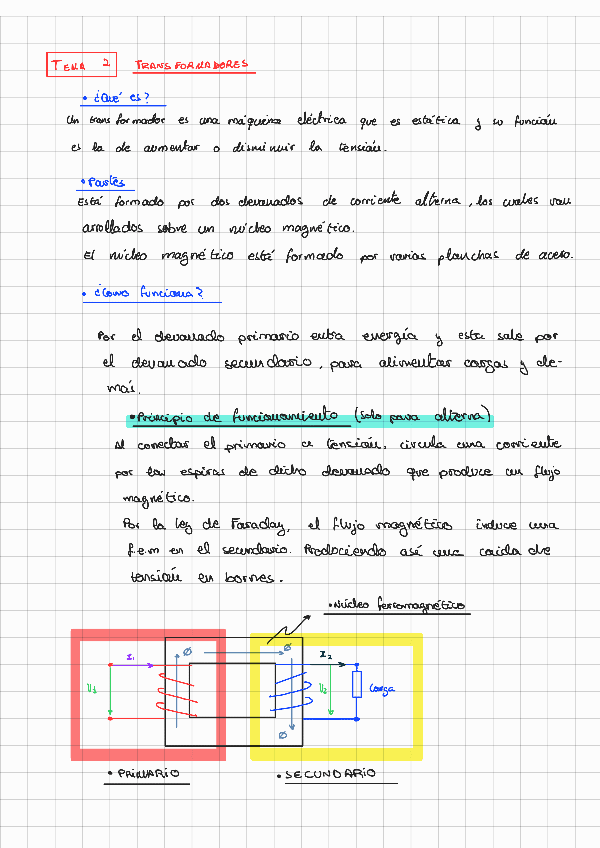 TEMA 2 TRANSFORMADORES
• ¿Qué es?
Un transformador es una máquina eléctrica que es estática y su función
es la de aumentar o disminuir la tensión.
• Partes
Está formado por dos devanados de corriente alterna, los cuales van
arrollados sobre un núcleo magnético.
El núcleo magnético está formado por varias planchas de acero.
• ¿Como funciona?
Por el devanado primario entra energía y esta sale por
el devanado secundario, para alimentar cargas y de-
más.
• Principio de funcionamiento (solo para alterna)
Al conectar el primario a tensión, circula una corriente
por las espiras de dicho devanado que produce un flujo
magnético.
Por la ley de Faraday, el flujo magnético induce una
f.e.m en el secundario. Produciendo así una caida de
tensión en bornes.
• Núcleo ferromagnético
I1 Ø Ø I2
U1 U2 Carga
Ø
• PRIMARIO • SECUNDARIO